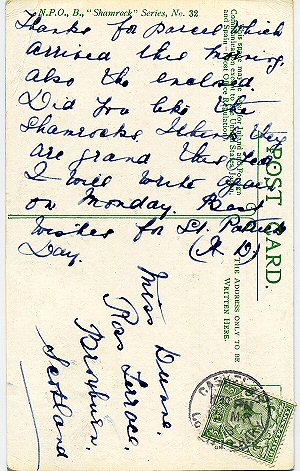 N.P.O., B., "Shamrock" Series, No. 32
Thanks for parcel which
arrived this morning
also the enclosed.
Did you like the
Shamrocks. I think they
are grand this year
I will write you
on Monday. Best
Wishes for St. Patrick
Day. (X. D).
POST CARD.
THE ADDRESS ONLY TO BE
WRITTEN HERE.
Miss Dunne,
Ros Terrace,
Broxburn,
Scotland